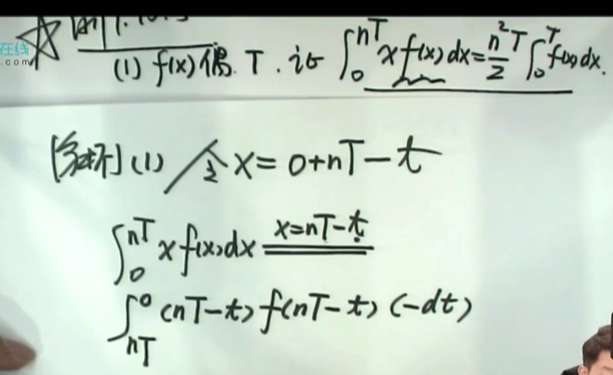 在线
.com
☆ 例1.
(1) f(x)偶. T. 证 ∫₀ⁿᵀ x f(x) dx = n²T/2 ∫₀ᵀ f(x) dx.
[分析] (1) 令 x = 0+nT-t
∫₀ⁿᵀ x f(x) dx x=nT-t
∫ₙᴛ⁰ (nT-t) f(nT-t) (-dt)